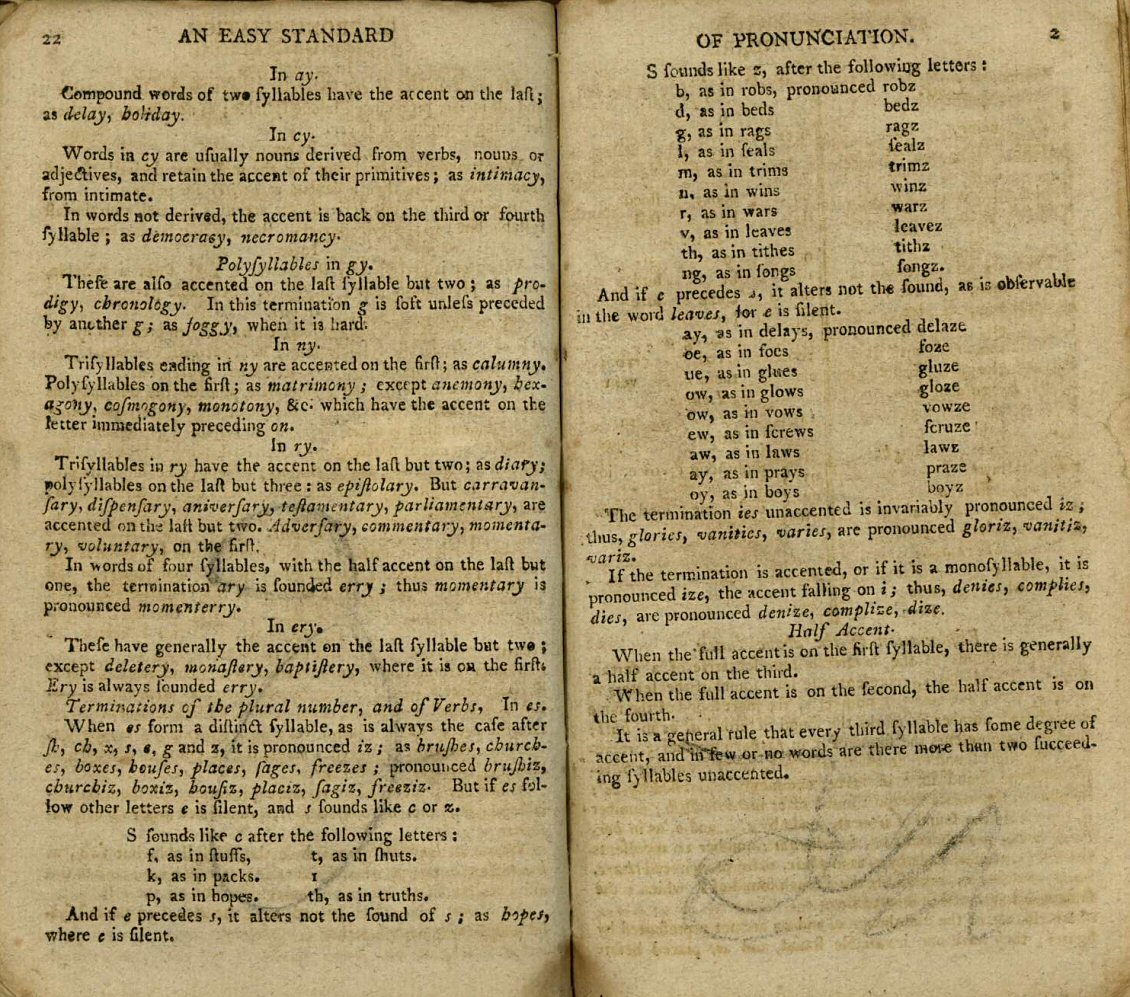 22 AN EASY STANDARD
In ay.
Compound words of two ſyllables have the accent on the laſt;
as delay, holiday.
In cy.
Words in cy are uſually nouns derived from verbs, nouns or
adjectives, and retain the accent of their primitives; as intimacy,
from intimate.
In words not derived, the accent is back on the third or fourth
ſyllable; as democrasy, necromancy.
Polyſyllables in gy.
Theſe are alſo accented on the laſt ſyllable but two; as pro-
digy, chronology. In this termination g is ſoft unleſs preceded
by another g; as foggy, when it is hard.
In ny.
Triſyllables ending in ny are accented on the firſt; as calumny.
Polyſyllables on the firſt; as matrimony; except anemony, hex-
agony, coſmogony, monotony, &c. which have the accent on the
letter immediately preceding on.
In ry.
Triſyllables in ry have the accent on the laſt but two; as diary;
polyſyllables on the laſt but three: as epiſtolary. But carravan-
ſary, diſpenſary, aniverſary, teſtamentary, parliamentary, are
accented on the laſt but two. Adverſary, commentary, momenta-
ry, voluntary, on the firſt.
In words of four ſyllables, with the half accent on the laſt but
one, the termination ary is ſounded erry; thus momentary is
pronounced momenterry.
In ery.
Theſe have generally the accent on the laſt ſyllable but two;
except deletery, monaſtery, baptiſtery, where it is on the firſt.
Ery is always ſounded erry.
Terminations of the plural number, and of Verbs, In es.
When es form a diſtinct ſyllable, as is always the caſe after
ſh, ch, x, s, e, g and z, it is pronounced iz; as bruſhes, church-
es, boxes, houſes, places, ſages, freezes; pronounced bruſhiz,
churchiz, boxiz, houſiz, placiz, ſagiz, freeziz. But if es fol-
low other letters e is ſilent, and s ſounds like c or z.
S ſounds like c after the following letters:
f, as in ſtuffs, t, as in ſhuts.
k, as in packs. 1
p, as in hopes. th, as in truths.
And if e precedes s, it alters not the ſound of s; as hopes,
where e is ſilent.
OF PRONUNCIATION. 2
S ſounds like z, after the following letters:
b, as in robs, pronounced robz
d, as in beds bedz
g, as in rags ragz
l, as in ſeals ſealz
m, as in trims trimz
n, as in wins winz
r, as in wars warz
v, as in leaves leavez
th, as in tithes tithz
ng, as in ſongs ſongz.
And if e precedes s, it alters not the ſound, as is obſervable
in the word leaves, for e is ſilent.
ay, as in delays, pronounced delaze
oe, as in foes foze
ue, as in glues gluze
ow, as in glows gloze
ow, as in vows vowze
ew, as in ſcrews ſcruze
aw, as in laws lawz
ay, as in prays praze
oy, as in boys boyz
The termination ies unaccented is invariably pronounced iz;
thus, glories, vanities, varies, are pronounced gloriz, vanitiz,
variz.
If the termination is accented, or if it is a monoſyllable, it is
pronounced ize, the accent falling on i; thus, denies, complies,
dies, are pronounced denize, complize, dize.
Half Accent.
When the full accent is on the firſt ſyllable, there is generally
a half accent on the third.
When the full accent is on the ſecond, the half accent is on
the fourth.
It is a general rule that every third ſyllable has ſome degree of
accent, and in few or no words are there more than two ſucceed-
ing ſyllables unaccented.